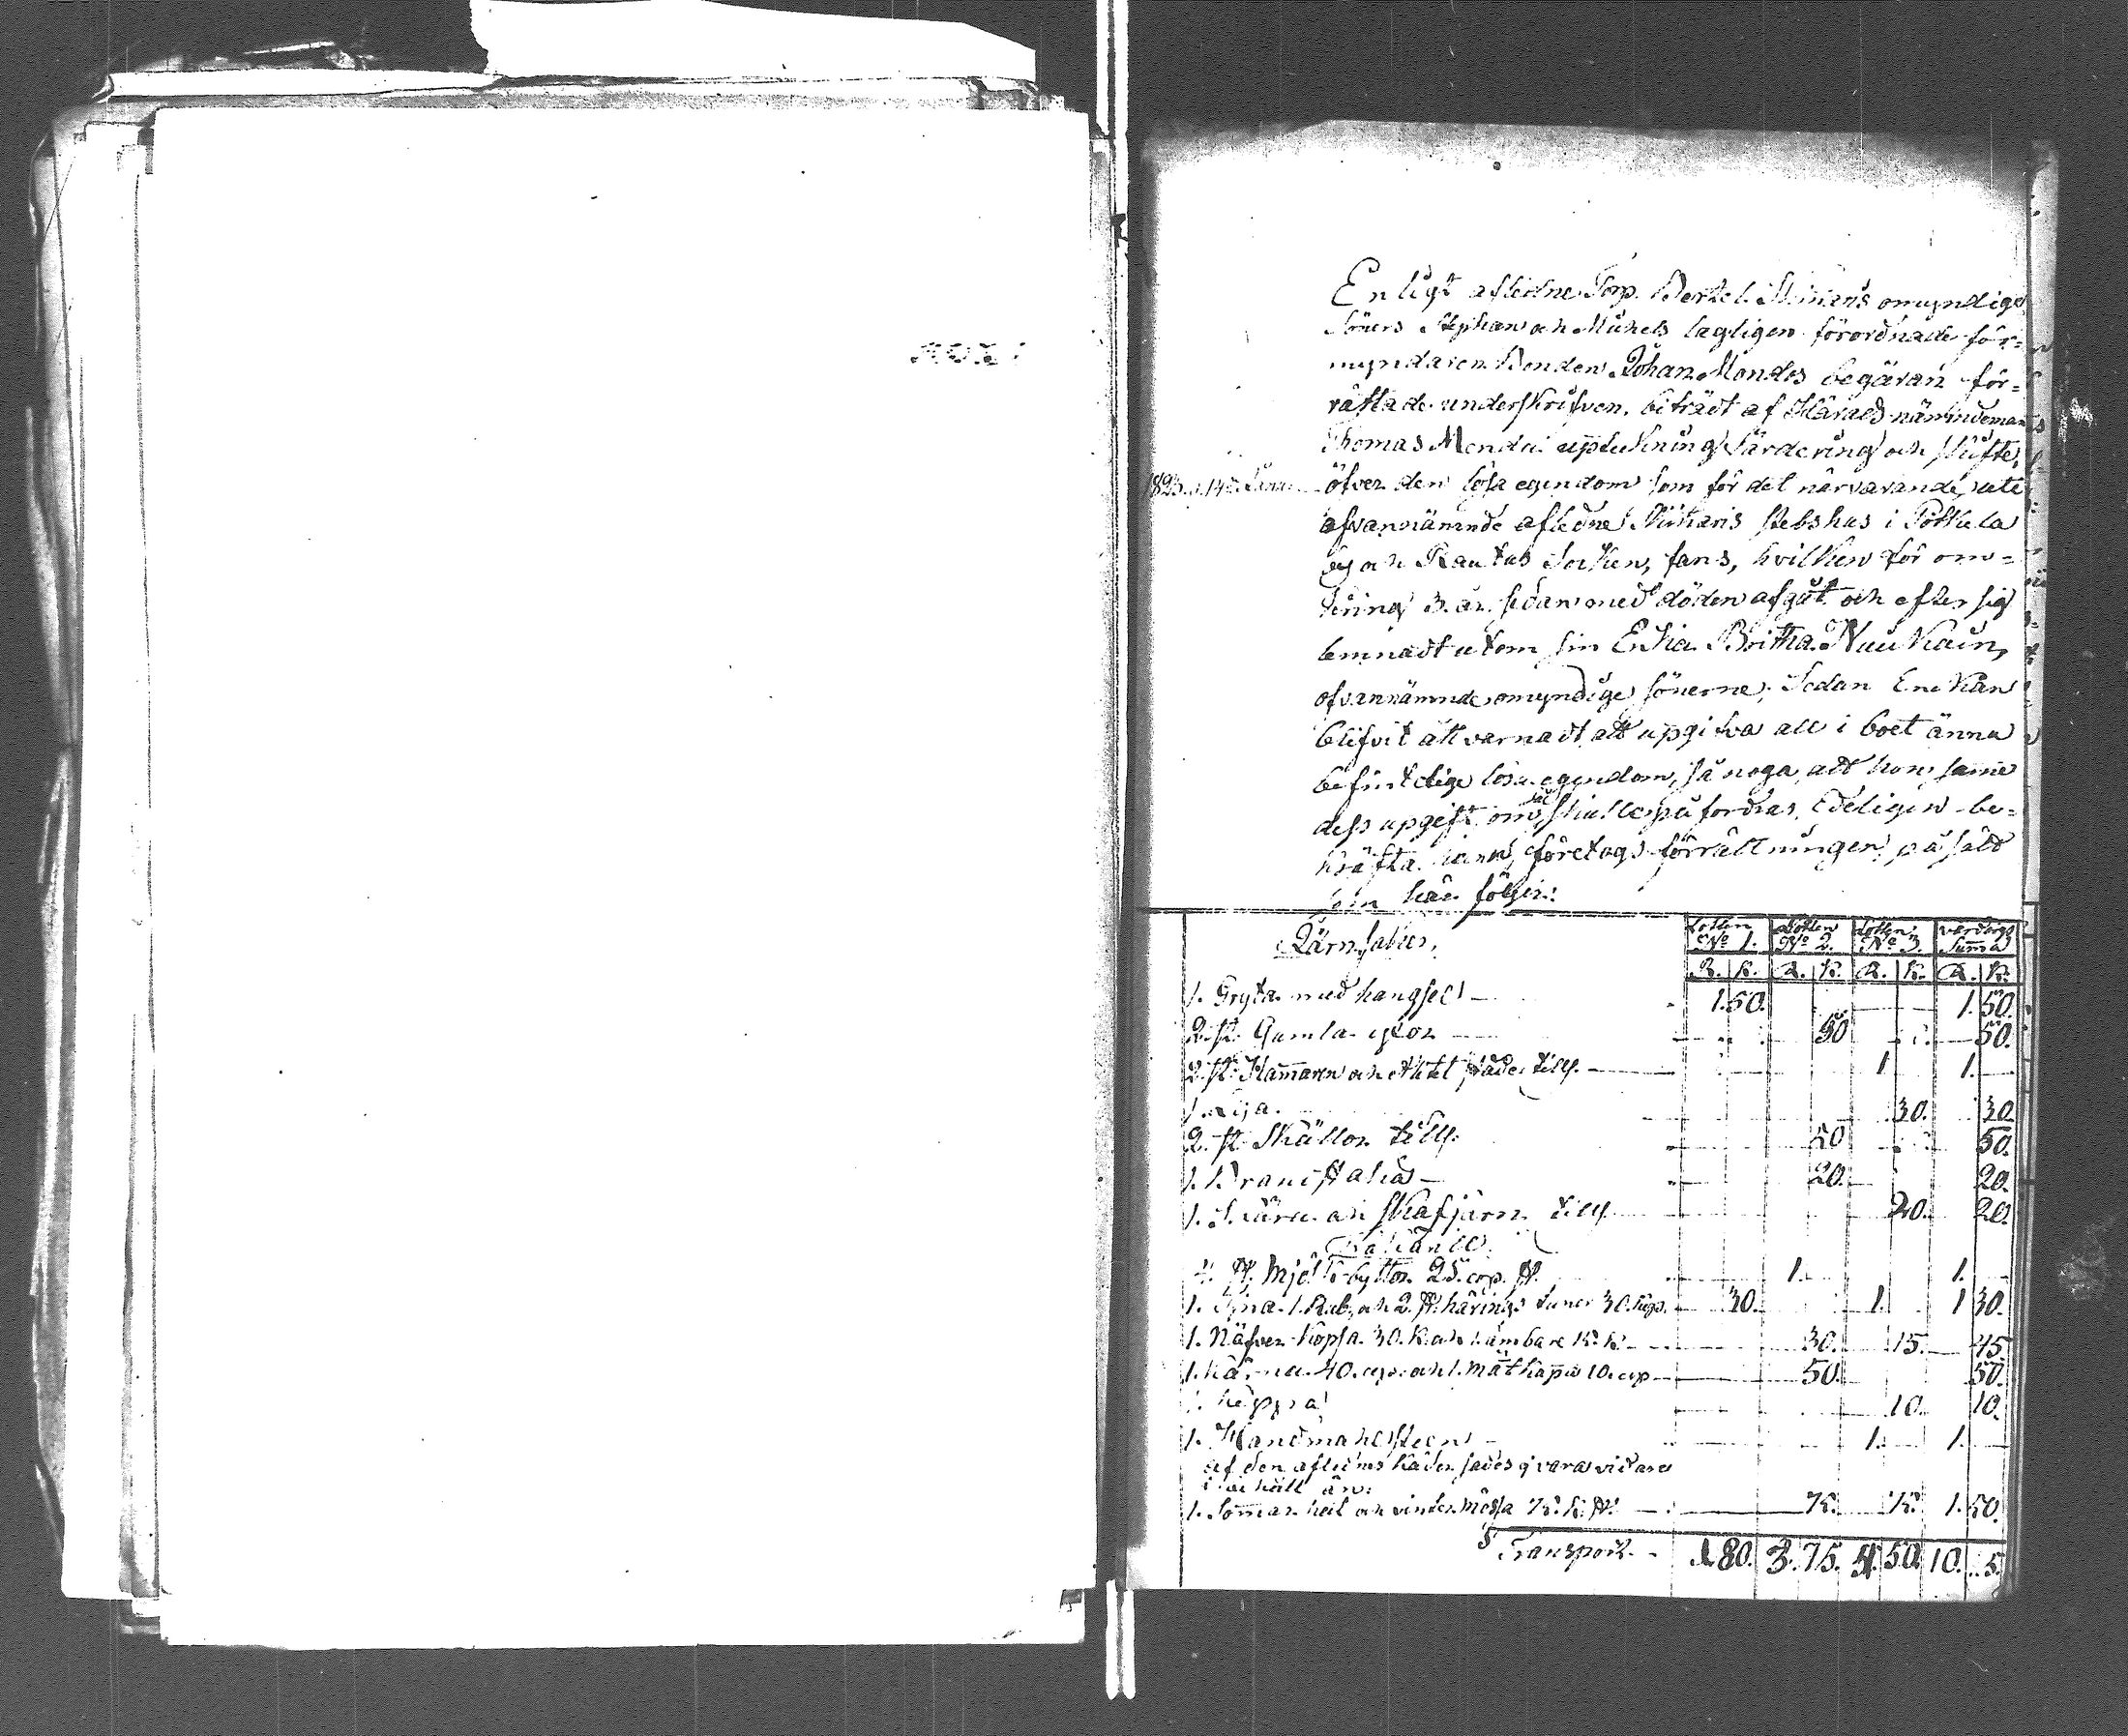 Enligt afledne Torp. Bertel omyndige
Söners Stephan och Michels lagligen förordnade för=
myndaren Bonden Johan Mondos begäran för=
rättade underskrifven, biträdt af Härads nämndeman
Thomas Mondoi upteckning värdering och skifte,
1823. d. 14de
öfver den lösa egendom som för det närvarande uti
ofvannämnde afledne stebshus i
by och Rautus Socken, fans, hvilken för om=
kring 3. år sedan med döden afgåt och efter sig
lemnadt utom sin Enkia Britha Nuikain,
ofvannämnde omyndige sönerne; Sedan Enkian
blifvit åtvarnadt att upgifva all i boet ännu
befintelige lösa egendom, så noga att hon samme
dess upgift om så skulle påfordras, Edeligen be=
kräfta kann, företogs förrättningen på sätt
som här följer:
Järnsaker.
Lotten No 1. Lotten No 2. Lotten No 3. värdings Summa
R. K. R. K. R. K. R. K.
1. Gryta med hangsel 1. 50. 1. 50.
2. st. Gamla yxor 50 50.
2. st. Hamaren och städe tills. 1 1.
1. Lija. 30. 30
2. st. Skällor tills. 50 50.
1. 20. 20.
1. Skära och Skafjärn tills 20. 20.
4. st. Mjölkbyttor 25. cop. st. 1. 1.
1. Tina 1. Rub. och 2. st. härings tunor 30. 30. 1. 1 30.
1. Näfver köpsa 30. K. och 1 ämbare 15. K. 30. 15. 45
1. kärna 40. cop. och 1. mat kappa 10. cop 50. 50.
1. käppa 10. 10.
1. Handmahlsteen 1. 1.
af den aflednes kläder sades ej vara vidare
i behåll än:
1. Somar hatt och vinter mössa 75. K. st. 75. 75. 1. 50.
Transport. 1 80. 3. 75. 4. 50 10. 5.